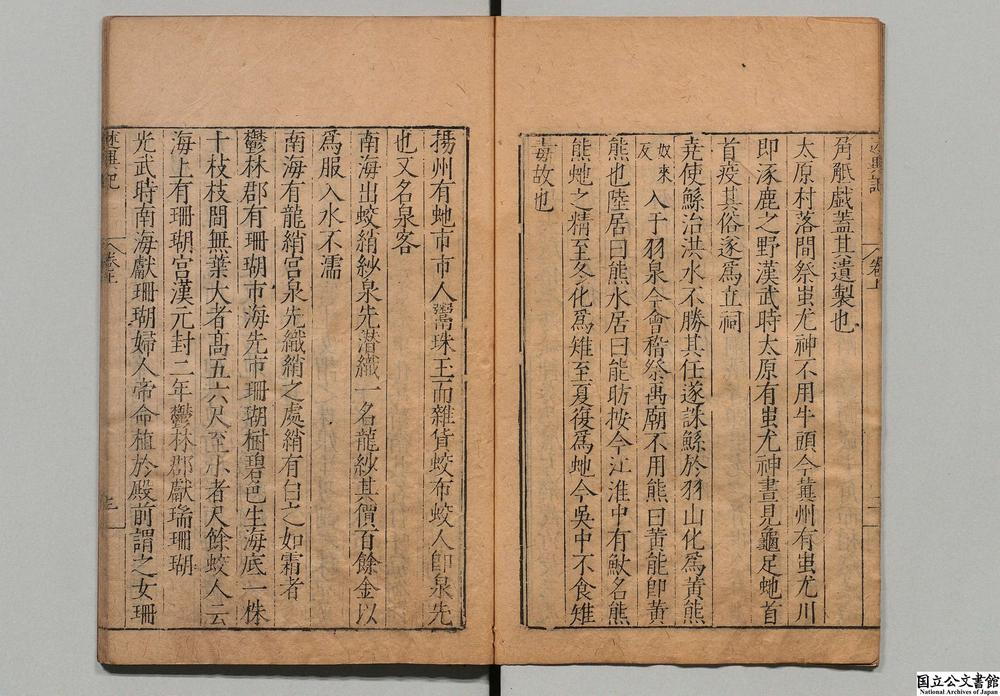 述異記
卷上
二
角觝戲蓋其遺製也
太原村落間祭蚩尤神不用牛頭今冀州有蚩尤川
即涿鹿之野漢武時太原有蚩尤神晝見龜足虵首
首疫其俗遂爲立祠
堯使鯀治洪水不勝其任遂誅鯀於羽山化爲黃熊
奴來反入于羽泉今會稽祭禹廟不用熊曰黃能即黃
熊也陸居曰熊水居曰能昉按今江淮中有䱷名熊
熊虵之精至冬化爲雉至夏復爲虵今吳中不食雉
毒故也
揚州有虵市市人鬻珠玉而雜貨蛟布蛟人即泉先
也又名泉客
南海出蛟綃紗泉先潜織一名龍紗其價百餘金以
爲服入水不濡
南海有龍綃宮泉先織綃之處綃有白之如霜者
鬱林郡有珊瑚市海先市珊瑚樹碧色生海底一株
十枝枝間無葉大者高五六尺至小者尺餘蛟人云
海上有珊瑚宮漢元封二年鬱林郡獻瑞珊瑚
光武時南海獻珊瑚婦人帝命植於殿前謂之女珊
述異記
卷上
三
国立公文書館
National Archives of Japan